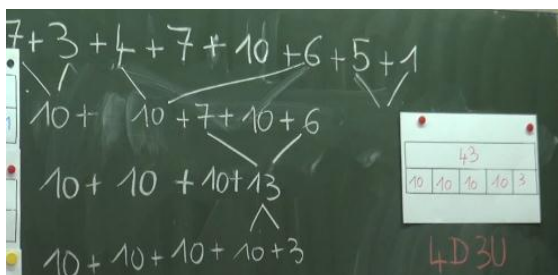 7+3+4+7+10+6+5+1
10+ 10+7+10+6
10+10+10+13
10+10+10+10+3
43
10 10 10 10 3
4D3U